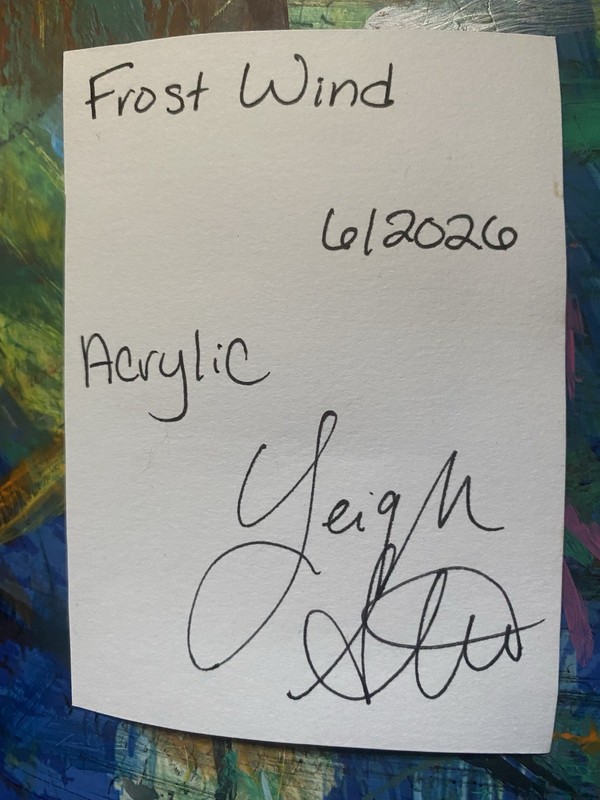 Frost Wind
6/2026
Acrylic
Leigh